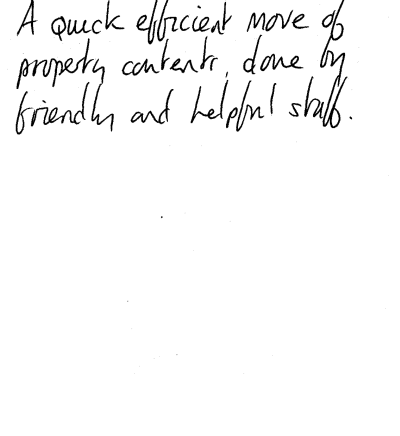 A quick efficient move of
property contents, done by
friendly and helpful staff.